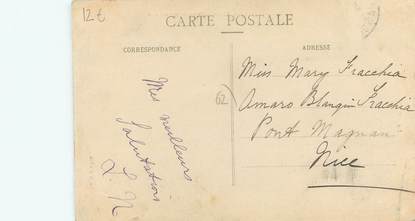 12€
CARTE POSTALE
CORRESPONDANCE
ADRESSE
Mes meilleurs
Salutations
L. N
62
Miss Mary Fracchia
Amaro Blangin Fracchia
Pont Magnan
Nice